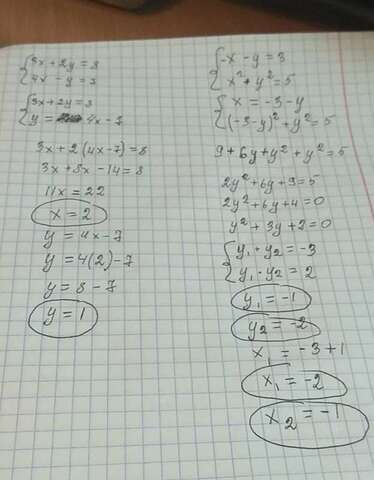 3x + 2y = 8
4x - y = 7
3x + 2y = 8
y = 4x - 7
3x + 2(4x-7) = 8
3x + 8x - 14 = 8
11x = 22
x = 2
y = 4x - 7
y = 4(2) - 7
y = 8 - 7
y = 1
-x - y = 3
x² + y² = 5
x = -3 - y
(-3-y)² + y² = 5
9 + 6y + y² + y² = 5
2y² + 6y + 9 = 5
2y² + 6y + 4 = 0
y² + 3y + 2 = 0
y₁ + y₂ = -3
y₁ · y₂ = 2
y₁ = -1
y₂ = -2
x₁ = -3 + 1
x₁ = -2
x₂ = -1